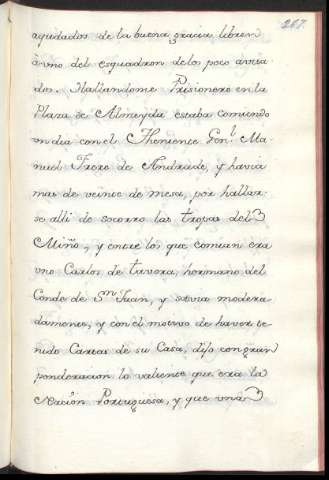 267.
aquidados de la buena gracia libren
à uno del esquadron delos poco avisa
dos. Hallandome Prisionero en la
Plaza de Almeyda estaba comiendo
un dia con el Theniente Gen.l Ma-
nuel Frexe de Andrade, y havia
mas de veinte de mesa, por hallar-
se alli de socorro las tropas del
Miño, y entre los que comian era
uno Carlos de tavora, hermano del
Conde de S.n Juan, y servia modera-
damente, y con el motivo de haver te-
nido Cartas de su Casa, dijo con gran
ponderacion lo valiente que era la
Nación Portuguesa, y que